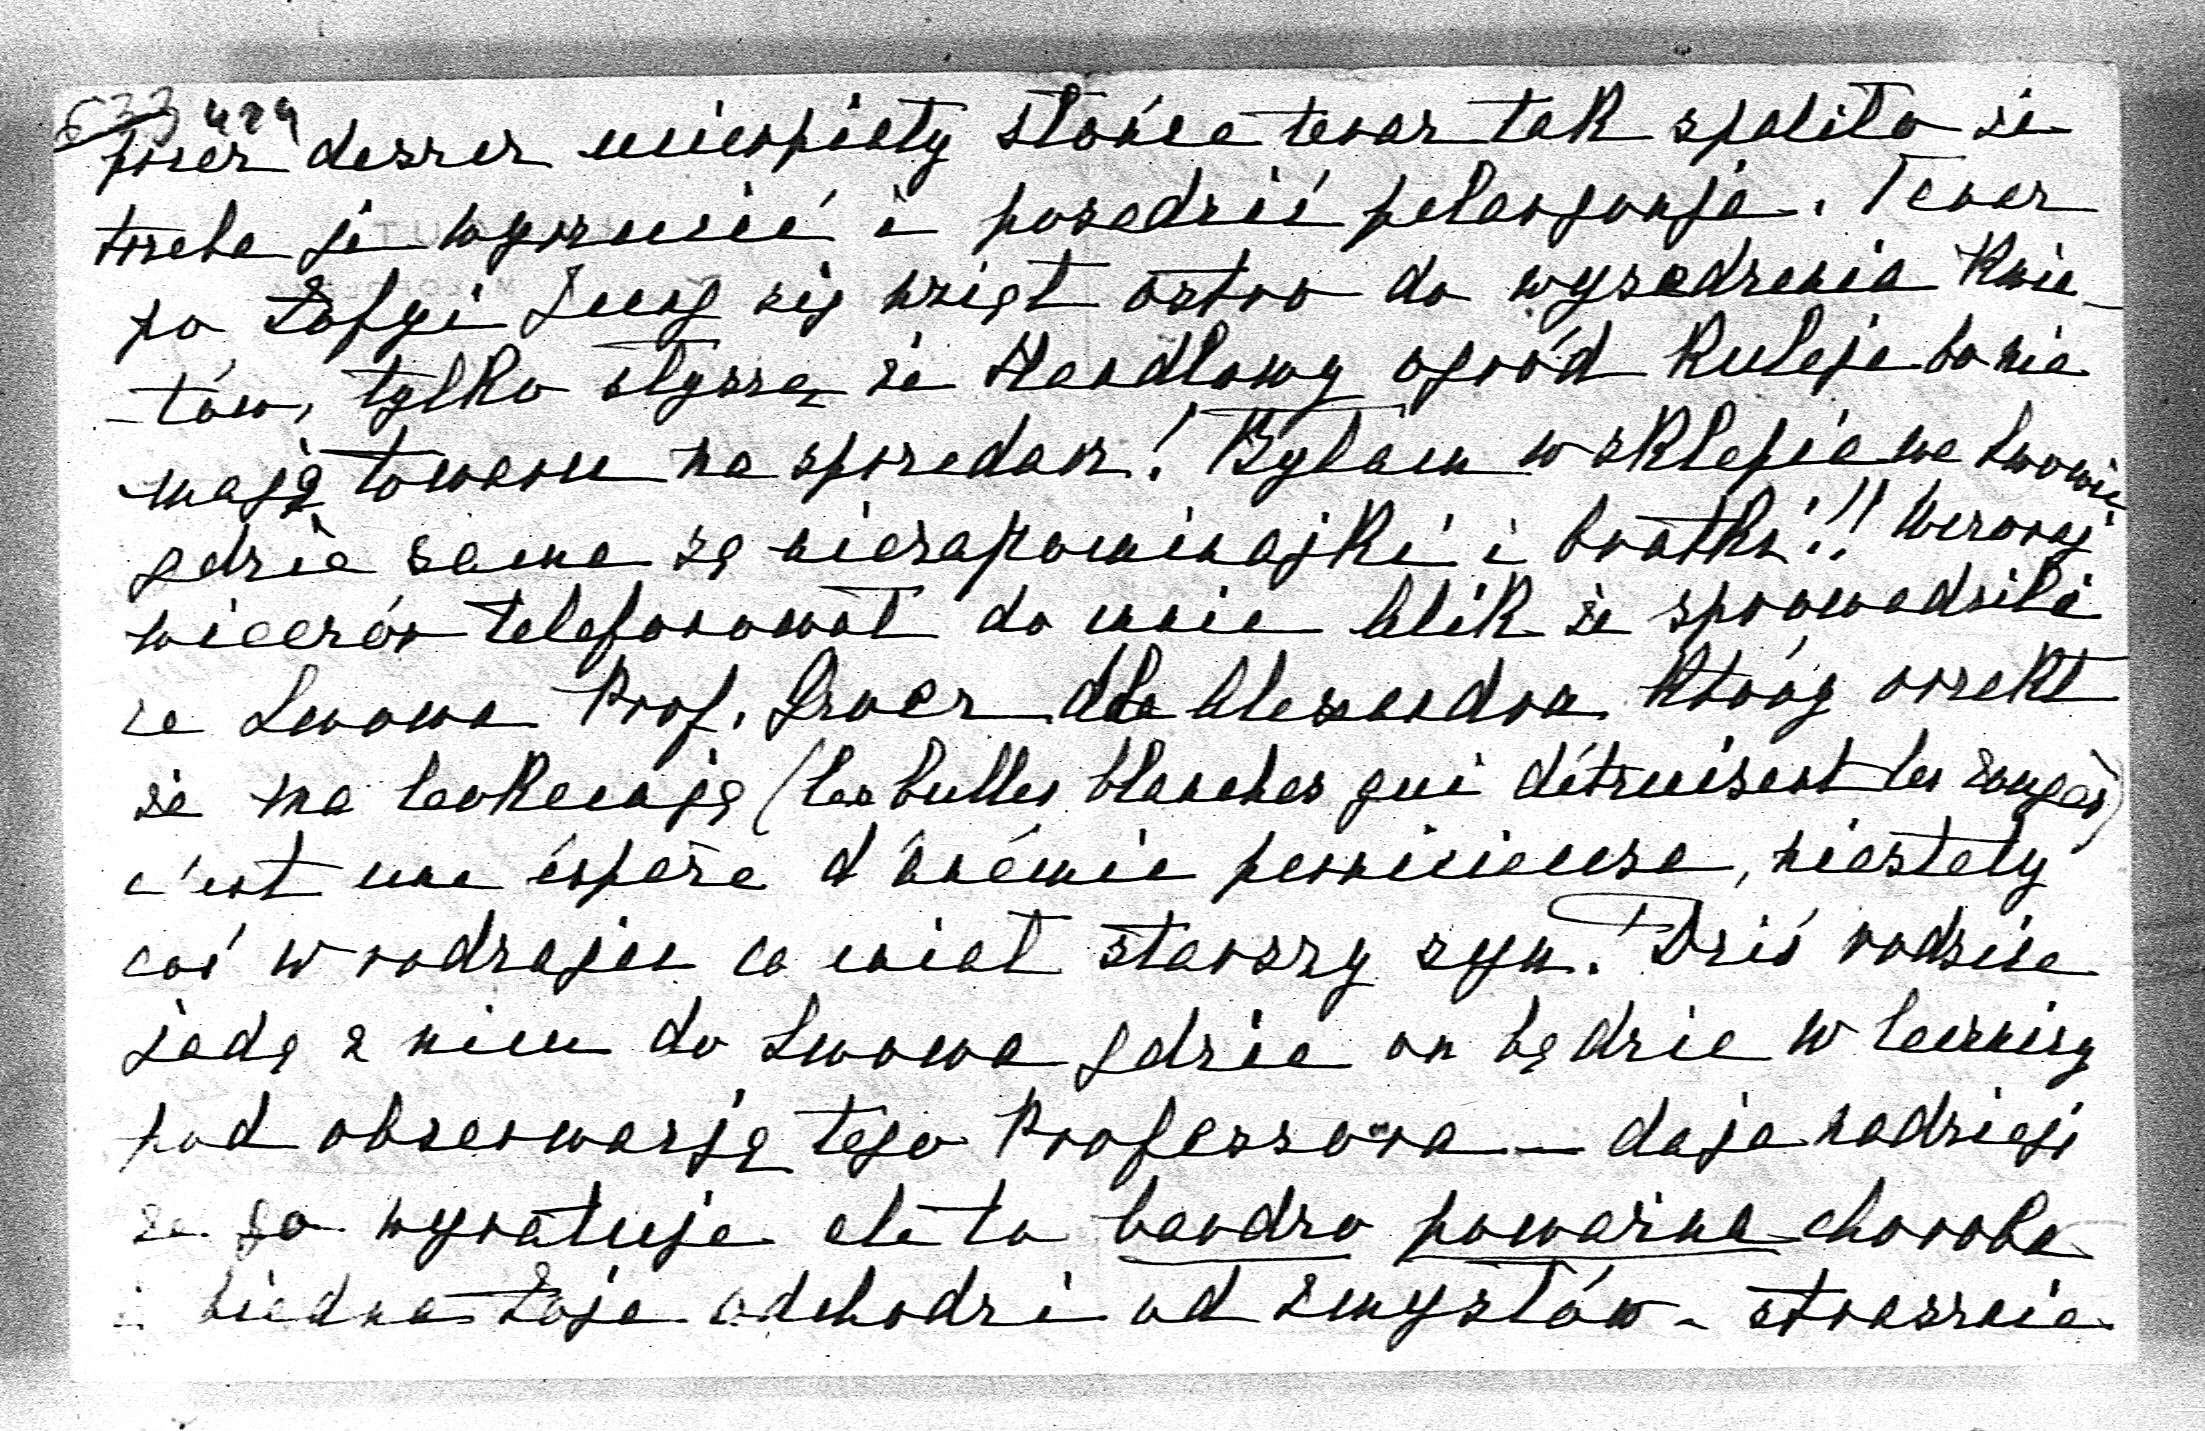 533 424
przez deszcz ucierpiały słońce teraz tak spaliło że
trzeba je wyrzucić i posadzić pelargonje. Teraz
po Zofji Jung się wziął ostro do wysadzenia kwia-
-tów, tylko słyszę że Handlowy ogród kuleje bo nie
mają towaru na sprzedarz! Byłam w sklepie we Lwowie
gdzie same są niezapominajki i bratki!! Wczoraj
wieczór telefonował do mnie Alik że sprowadzili
ze Lwowa Prof. Groer dla Alexandra który orzekł
że ma leukemję (les bulles blanches qui détruisent les rouges)
c'est une éspèce d'anémie pernicieuse, niestety
coś w rodzaju co miał starszy syn. Dziś rodzice
jadą z nim do Lwowa gdzie on będzie w lecznicy
pod obserwacją tego Professora — daje nadzieję
że go wyratuje ale to bardzo poważna choroba
i biedna Zoja odchodzi od zmysłów - strasznie